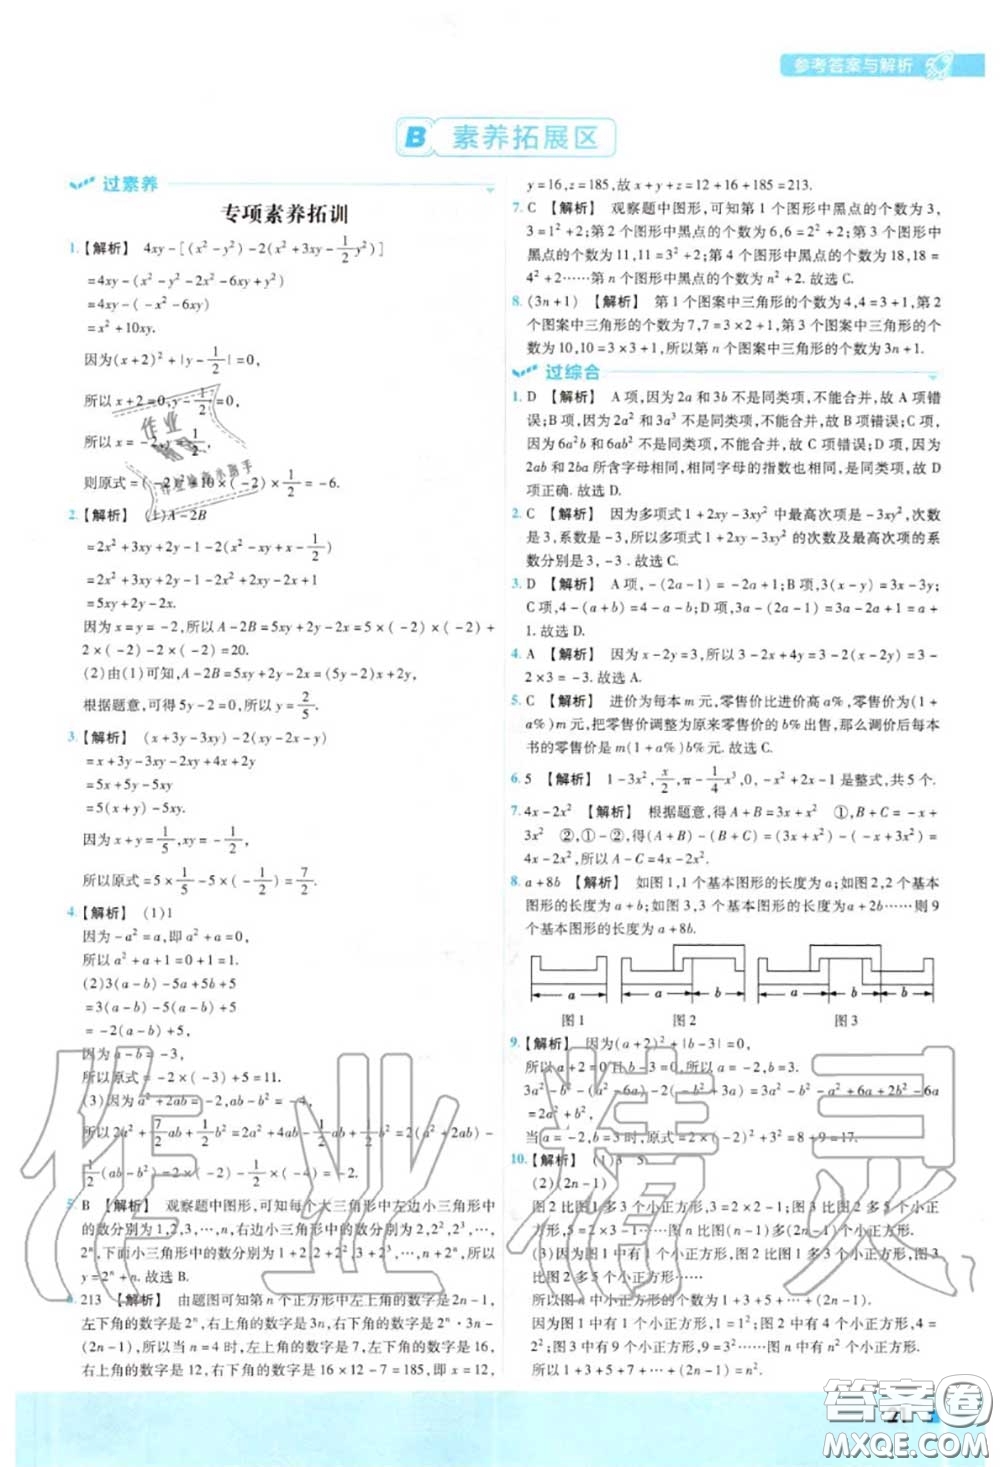 参考答案与解析
B 素养拓展区
过素养
专项素养拓训
1.【解析】 4xy-[(x²-y²)-2(x²+3xy-1/2y²)]
=4xy-(x²-y²-2x²-6xy+y²)
=4xy-(-x²-6xy)
=x²+10xy.
因为(x+2)²+|y-1/2|=0,
所以x+2=0,y-1/2=0,
所以x=-2,y=1/2,
则原式=(-2)²+10×(-2)×1/2=-6.
2.【解析】 (1)A-2B
=2x²+3xy+2y-1-2(x²-xy-1/2)
=2x²+3xy+2y-1-2x²+2xy+1
=5xy+2y-2x.
因为x=y=-2,所以A-2B=5xy+2y-2x=5×(-2)×(-2)+
2×(-2)-2×(-2)=20.
(2)由(1)可知,A-2B=5xy+2y-2x=(5y-2)x+2y,
根据题意,可得5y-2=0,所以y=2/5.
3.【解析】 (x+3y-3xy)-2(xy-2x-y)
=x+3y-3xy-2xy+4x+2y
=5x+5y-5xy
=5(x+y)-5xy.
因为x+y=1/5,xy=-1/5,
所以原式=5×1/5-5×(-1/5)=2.
4.【解析】 (1)1
因为-a²=a,即a²+a=0,
所以a²+a+1=0+1=1.
(2)3(a-b)-5a+5b+5
=3(a-b)-5(a-b)+5
=-2(a-b)+5,
因为a-b=-3,
所以原式=-2×(-3)+5=11.
(3)因为a²+2ab=-2,ab-b²=-4,
所以2a²+7/2ab+1/2b²=2a²+4ab-1/2ab+1/2b²=2(a²+2ab)-
1/2(ab-b²)=2×(-2)-1/2×(-4)=-2.
5. B 【解析】 观察题中图形,可知每个大三角形中左边小三角形中
的数分别为1,2,3,…,n,右边小三角形中的数分别为2,2²,2³,…,
2ⁿ,下面小三角形中的数分别为1+2,2+2²,3+2³,…,n+2ⁿ,所以
y=2ⁿ+n.故选B.
6. 213 【解析】 由题图可知第n个正方形中左上角的数字是2n-1,
左下角的数字是2ⁿ,右上角的数字是3n,右下角的数字是2ⁿ·3n-
(2n-1),所以当n=4时,左上角的数字是7,左下角的数字是16,
右上角的数字是12,右下角的数字是16×12-7=185,即x=12,
y=16,z=185,故x+y+z=12+16+185=213.
7. C 【解析】 观察题中图形,可知第1个图形中黑点的个数为3,
3=1²+2;第2个图形中黑点的个数为6,6=2²+2;第3个图形中
黑点的个数为11,11=3²+2;第4个图形中黑点的个数为18,18=
4²+2……第n个图形中黑点的个数为n²+2.故选C.
8. (3n+1) 【解析】 第1个图案中三角形的个数为4,4=3+1,第2
个图案中三角形的个数为7,7=3×2+1,第3个图案中三角形的个
数为10,10=3×3+1,所以第n个图案中三角形的个数为3n+1.
过综合
1. D 【解析】 A项,因为2a和3b不是同类项,不能合并,故A项错
误;B项,因为2a²和3a³不是同类项,不能合并,故B项错误;C项,
因为6a²b和6ab²不是同类项,不能合并,故C项错误;D项,因为
2ab和2ba所含字母相同,相同字母的指数也相同,故D
项正确.故选D.
2. C 【解析】 因为多项式1+2xy-3xy²中最高次项是-3xy²,次数
是3,系数是-3,所以多项式1+2xy-3xy²的次数及最高次项的系
数分别是3,-3.故选C.
3. D 【解析】 A项,-(2a-1)=-2a+1;B项,3(x-y)=3x-3y;
C项,4-(a+b)=4-a-b;D项,2a-(2a-1)=2a-2a+1=a+
1.故选D.
4. A 【解析】 因为x-2y=3,所以3-2x+4y=3-2(x-2y)=3-
2×3=-3.故选A.
5. C 【解析】 进价为每本m元,零售价比进价高a%,零售价为(1+
a%)m元,把零售价调整为原来零售价的b%出售,那么调价后每本
书的零售价是m(1+a%)b%元.故选C.
6. 5 【解析】 1-3x²,x/2,π-1/4x³,0,-x²+2x-1是整式,共5个.
7. 4x-2x² 【解析】 根据题意,得A+B=3x+x² ①,B+C=-x+
3x² ②,①-②,得(A+B)-(B+C)=(3x+x²)-(-x+3x²)=
4x-2x²,所以A-C=4x-2x².
8. a+8b 【解析】 如图1,1个基本图形的长度为a;如图2,2个基本
图形的长度为a+b;如图3,3个基本图形的长度为a+2b……则9
个基本图形的长度为a+8b.
a a b a b b
图1 图2 图3
9.【解析】 因为(a+2)²+|b-3|=0,
所以a+2=0且b-3=0,所以a=-2,b=3.
3a²-b²-(a²-6a)-2(-b²+3a)=3a²-b²-a²+6a+2b²-6a
=2a²+b²,
当a=-2,b=3时,原式=2×(-2)²+3²=8+9=17.
10.【解析】 (1)3 5
(2)(2n-1)
图2比图1多3个小正方形,3=2×2-1;图3比图2多5个小正方
形,5=2×3-1……图n比图(n-1)多(2n-1)个小正方形.
(3)因为图1中有1个小正方形,图2比图1多3个小正方形,图3
比图2多5个小正方形……
所以图n中小正方形的个数为1+3+5+…+2n-1.
因为图1中有1个小正方形,1=1²;图2中有4个小正方形,4=
2²;图3中有9个小正方形,9=3²……
所以1+3+5+7+…+(2n-1)=n².
21
作业精灵
答案圈
MXQE.COM